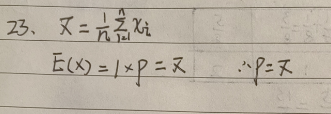 23、 x̄ = 1/n Σⁿᵢ₌₁ xᵢ
E(x) = 1 × p = x̄ ∴ p = x̄